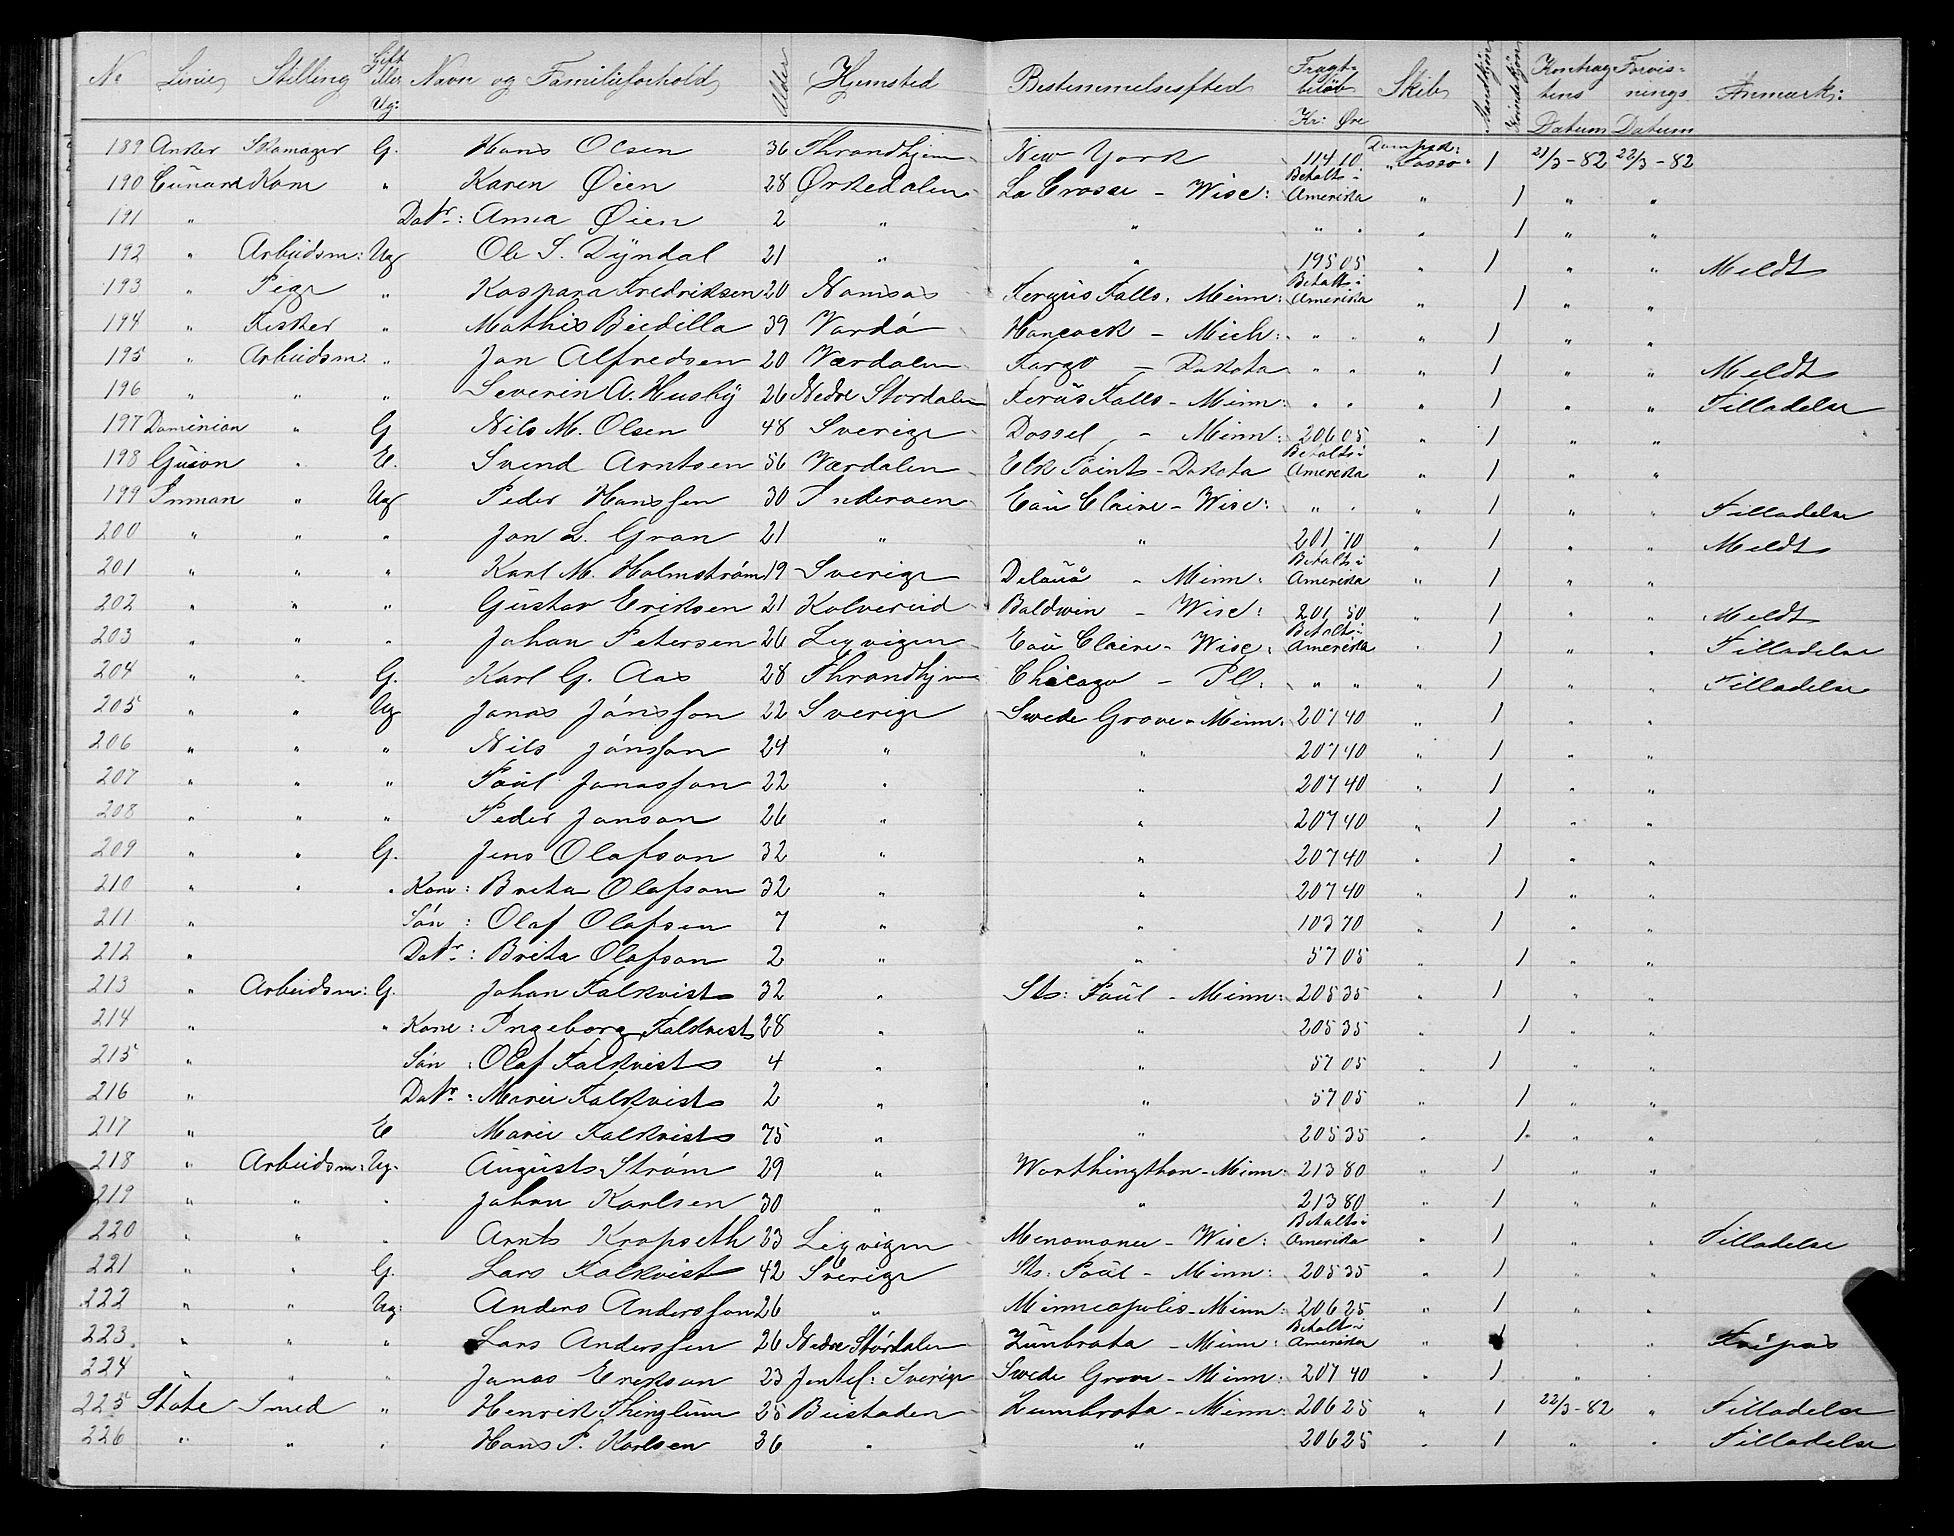 No Linie Stilling Gift eller Ug: Navn og Familieforhold Alder Hjemsted Bestemmelsessted Fragtbeløb Kr: Øre Skib Mandkjøn Kvindekjøn Kontraktens Datum Forvisnings Datum Anmærk:
189 Anker Skomager G. Hans Olsen 36 Throndhjem New York 114 10 Dampsk: "Tasso" 1 21/3-82 22/3-82
190 Cunard Kone " Karen Øien 28 Ørkedalen La Crosse - Wisc: Betalt i Amerika " 1 " "
191 " Datr: Anna Øien 2 " " " " " 1 " "
192 " Arbeidsm: Ug Ole S. Dyndal 21 " " 195 05 " 1 " " Meldt
193 " Pige " Kaspara Fredriksen 20 Namsos Fergus Falls. Minn: Betalt i Amerika " 1 " "
194 " Fisker " Mathis Biedilla 39 Vardö Hancock - Mich: " " " 1 " "
195 " Arbeidsm: " Jon Alfredsen 20 Værdalen Fargo - Dakota " " " 1 " " Meldt
196 " " " Severin A. Husby 26 Nedre Stordalen Ferus Falls - Minn: " " " 1 " " Tilladelse
197 Dominion " G Nils M. Olsen 48 Sverige Dassel - Minn: 206 05 " 1 " "
198 Guion " E. Svend Arntsen 56 Værdalen Elk Point - Dakota Betalt i Amerika " 1 " "
199 Inman " Ug Peder Hanssen 30 Inderøen Eau Claire - Wisc: " " " 1 " " Tilladelse
200 " " " Jon L. Gran 21 " " 201 70 " 1 " " Meldt
201 " " " Karl M. Holmstrøm 19 Sverige Delauo - Minn: Betalt i Amerika " 1 " "
202 " " " Gustav Eriksen 21 Kolvereid Baldwin - Wisc: 201 50 " 1 " " Meldt
203 " " " Johan Petersen 26 Lexvigen Eau Claire - Wisc: Betalt i Amerika " 1 " " Tilladelse
204 " " G. Karl G. Aas 28 Throndhjem Chicago - Ill: " " " 1 " " Tilladelse
205 " " Ug Jonas Jónsson 22 Sverige Swede Grove - Minn: 207 40 " 1 " "
206 " " " Nils Jónsson 24 " " 207 40 " 1 " "
207 " " " Paul Jonasson 22 " " 207 40 " 1 " "
208 " " " Peder Jonson 26 " " 207 40 " 1 " "
209 " " G. Jens Olafson 32 " " 207 40 " 1 " "
210 " " " Kone: Brita Olafson 32 " " 207 40 " 1 " "
211 " Søn: Olaf Olafsen 7 " " 103 70 " 1 " "
212 " Datr: Brita Olafson 2 " " 57 05 " 1 " "
213 " Arbeidsm: G. Johan Falkvist 32 " St: Paul - Minn: 205 35 " 1 " "
214 " " Kone: Ingeborg Falkvist 28 " " 205 35 " 1 " "
215 " Søn: Olaf Falkvist 4 " " 57 05 " 1 " "
216 " Datr: Marie Falkvist 2 " " 57 05 " 1 " "
217 " E Marie Falkvist 75 " " 205 35 " 1 " "
218 " Arbeidsm: Ug. August Strøm 29 " Worthingthon - Minn: 213 80 " 1 " "
219 " " " Johan Karlsen 30 " " 213 80 " 1 " "
220 " " " Arnt Kropseth 23 Lexvigen Menomonee - Wisc: Betalt i Amerika " 1 " " Tilladelse
221 " " G. Lars Falkvist 42 Sverige St: Paul - Minn: 205 35 " 1 " "
222 " " Ug: Anders Andersson 26 " Minneapolis - Minn: 206 25 " 1 " "
223 " " " Lars Anderssen 26 Nedre Størdalen Zumbrata - Minn: Betalt i Amerika " 1 " " Fripas
224 " " " Jonas Erikson 23 Jemtl: Sverige Swede Grove - Minn: 207 40 " 1 " "
225 State Smed " Henrik Thinglum 25 Beitstaden Zumbrota - Minn: 206 25 " 1 22/3-82 " Tilladelse
226 " " " Hans P. Karlsen 26 " " 206 25 " 1 " " Tilladelse